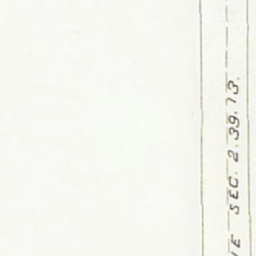 SEC. 2.39.13.